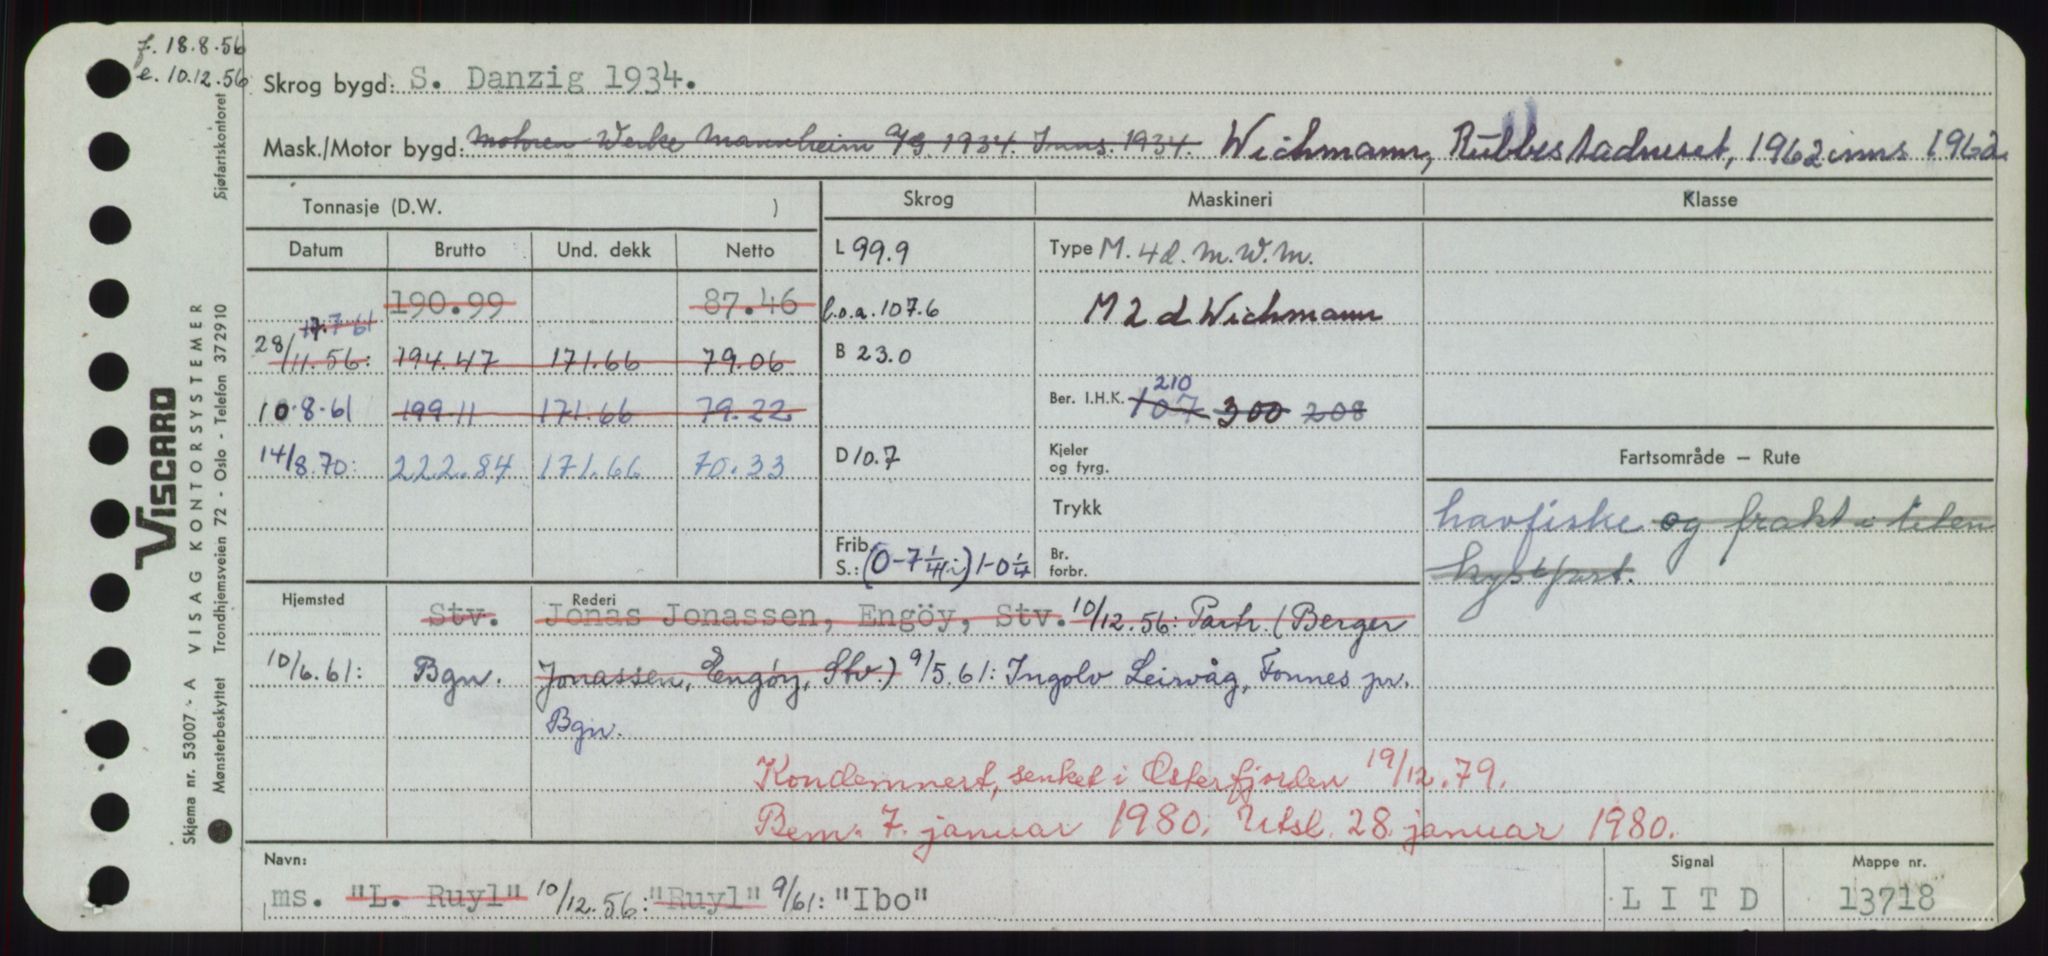 f. 18.8.56
e. 10.12.56
Skrog bygd: S. Danzig 1934.
Mask./Motor bygd: Motoren Werke Mannheim A/G. 1934. Inns. 1934. Wichmann, Rubbestadneset, 1962 inns 1962
Tonnasje (D.W. )
Skrog
Maskineri
Klasse
Datum Brutto Und. dekk Netto
L 99.9
Type M. 4d. M.W.M.
190.99 87.46
l.o.a. 107.6
M 2 d Wichmann
17.7 61
28/11.56: 194.47 171.66 79.06
B 23.0
210
10.8.61 199.11 171.66 79.22
Ber. I.H.K. 107 300 208
14/8.70: 222.84 171.66 70.33
D 10.7
Kjeler
og fyrg.
Fartsområde – Rute
Trykk
havfiske og frakt i liten
Frib.
S.: (0-7 1/4) 1-0 1/4
Br.
forbr.
kystfart.
Hjemsted
Rederi
Stv. Jonas Jonassen, Engöy, Stv. 10/12.56: Partr. (Berger
10/6.61: Bgn. Jonassen, Engöy, Stv.) 9/5.61: Ingolv Leirvåg, Fonnes pr.
Bgn.
Kondemnert, senket i Osterfjorden 19/12.79.
Bem. 7. januar 1980. Utsl. 28. januar 1980.
Navn:
Signal
Mappe nr.
ms. "L. Ruyl" 10/12.56: "Ruyl" 9/61: "Ibo"
L I T D
13718
VISCARD
Skjema nr. 53007 - A VISAG KONTORSYSTEMER
Mønsterbeskyttet Trondhjemsveien 72 - Oslo - Telefon 372910 Sjøfartskontoret